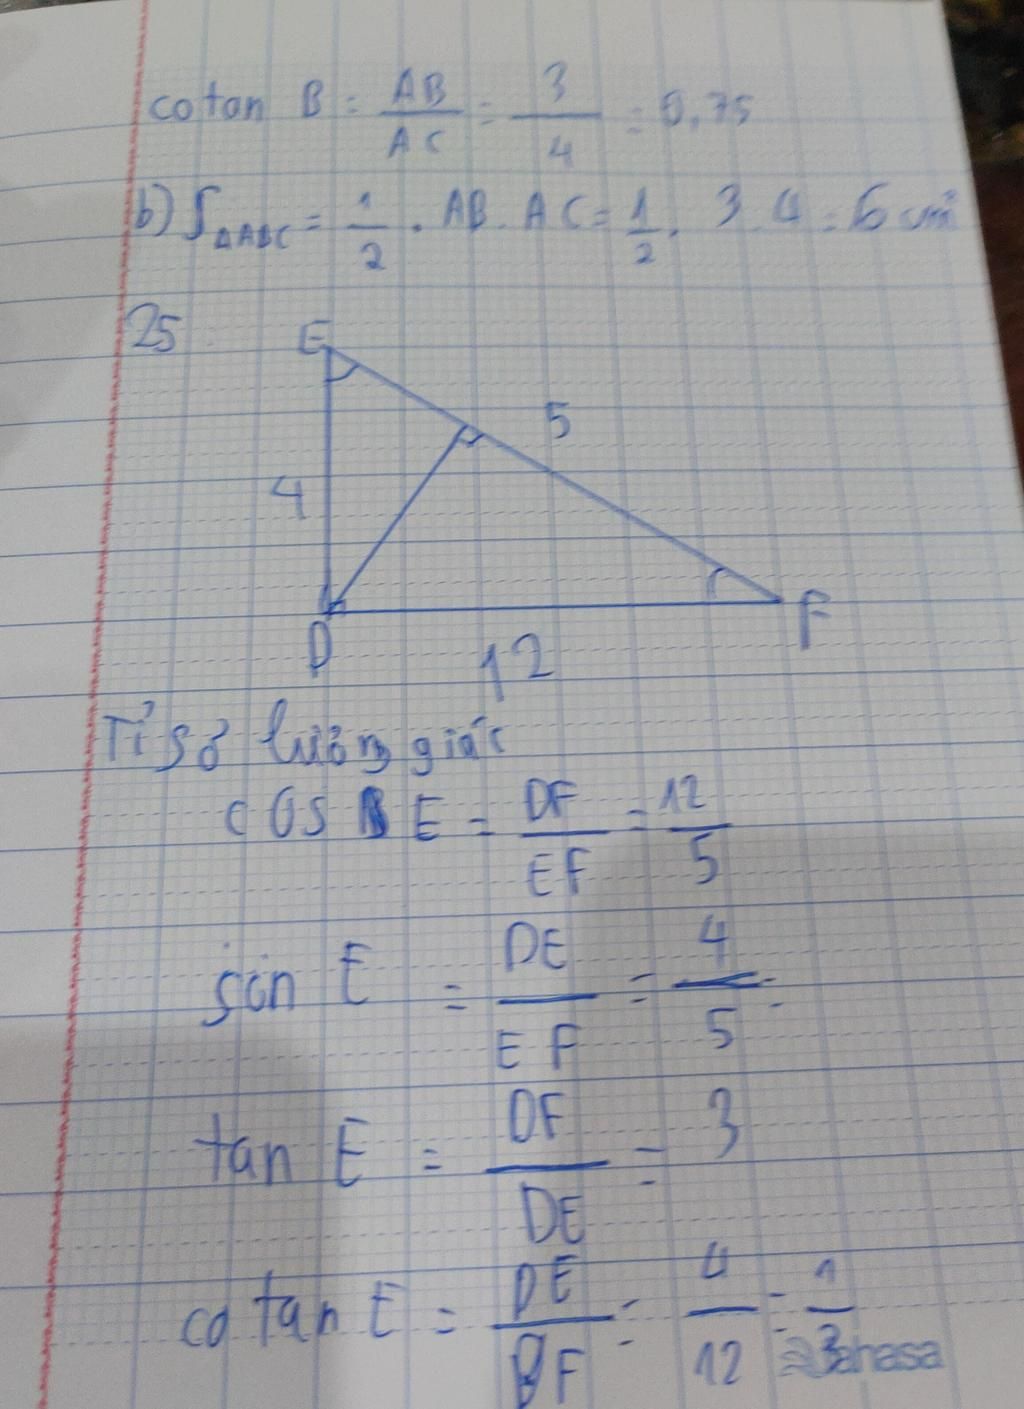 cotan B = AB/AC = 3/4 = 0,75
b) S△ABC = 1/2 . AB . AC = 1/2 . 3 . 4 = 6 cm²
25
E
5
4
D
F
12
Tỉ số lượng giác
cos E = DF/EF = 12/5
sin E = DE/EF = 4/5 =
tan E = DF/DE = 3
cotan E = DE/DF = 4/12 = 1/3
Bahasa